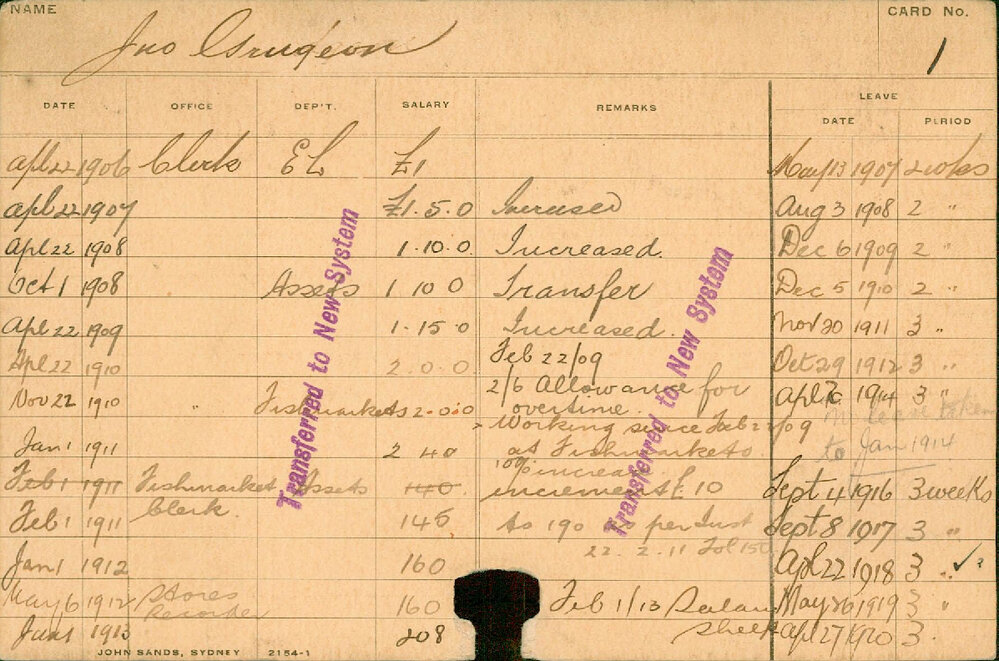 NAME CARD No.
Jno Grugeon 1
DATE OFFICE DEP'T. SALARY REMARKS LEAVE
DATE PERIOD
Apl 22 1906 Clerk EL £1 May 13 1907 2 wks
Apl 22 1907 £1.5.0 Increased Aug 3 1908 2 "
Apl 22 1908 1.10.0. Increased. Dec 6 1909 2 "
Oct 1 1908 Assets 1 10 0 Transfer Dec 5 1910 2 "
Apl 22 1909 1.15.0 Increased. Nov 20 1911 3 "
Apl 22 1910 2 0.0 Feb 22/09 Oct 29 1912 3 "
Nov 22 1910 " Fishmarkets 2.0.0 2/6 Allowance for overtime. Apl 1914 3 "
Working since Feb 22/09 at Fishmarkets. leave taken to Jan 1914
Jan 1 1911 2 4 0
Feb 1 1911 Fishmarket Assets 140 10% increa increment £10 Sept 4 1916 3 weeks
Feb 1 1911 Clerk. 145 to 190 as per Inst Sept 8 1917 3 "
22.2.11 Fol 150
Jan 1 1912 160 Apl 22 1918 3 " ✓?
May 6 1912 Stores Recorder 160 Feb 1/13 Salary May 26 1919 3 "
June 1 1913 208 Sheet Apl 27 1920 3.
Transferred to New System
Transferred to New System
JOHN SANDS, SYDNEY 2154-1